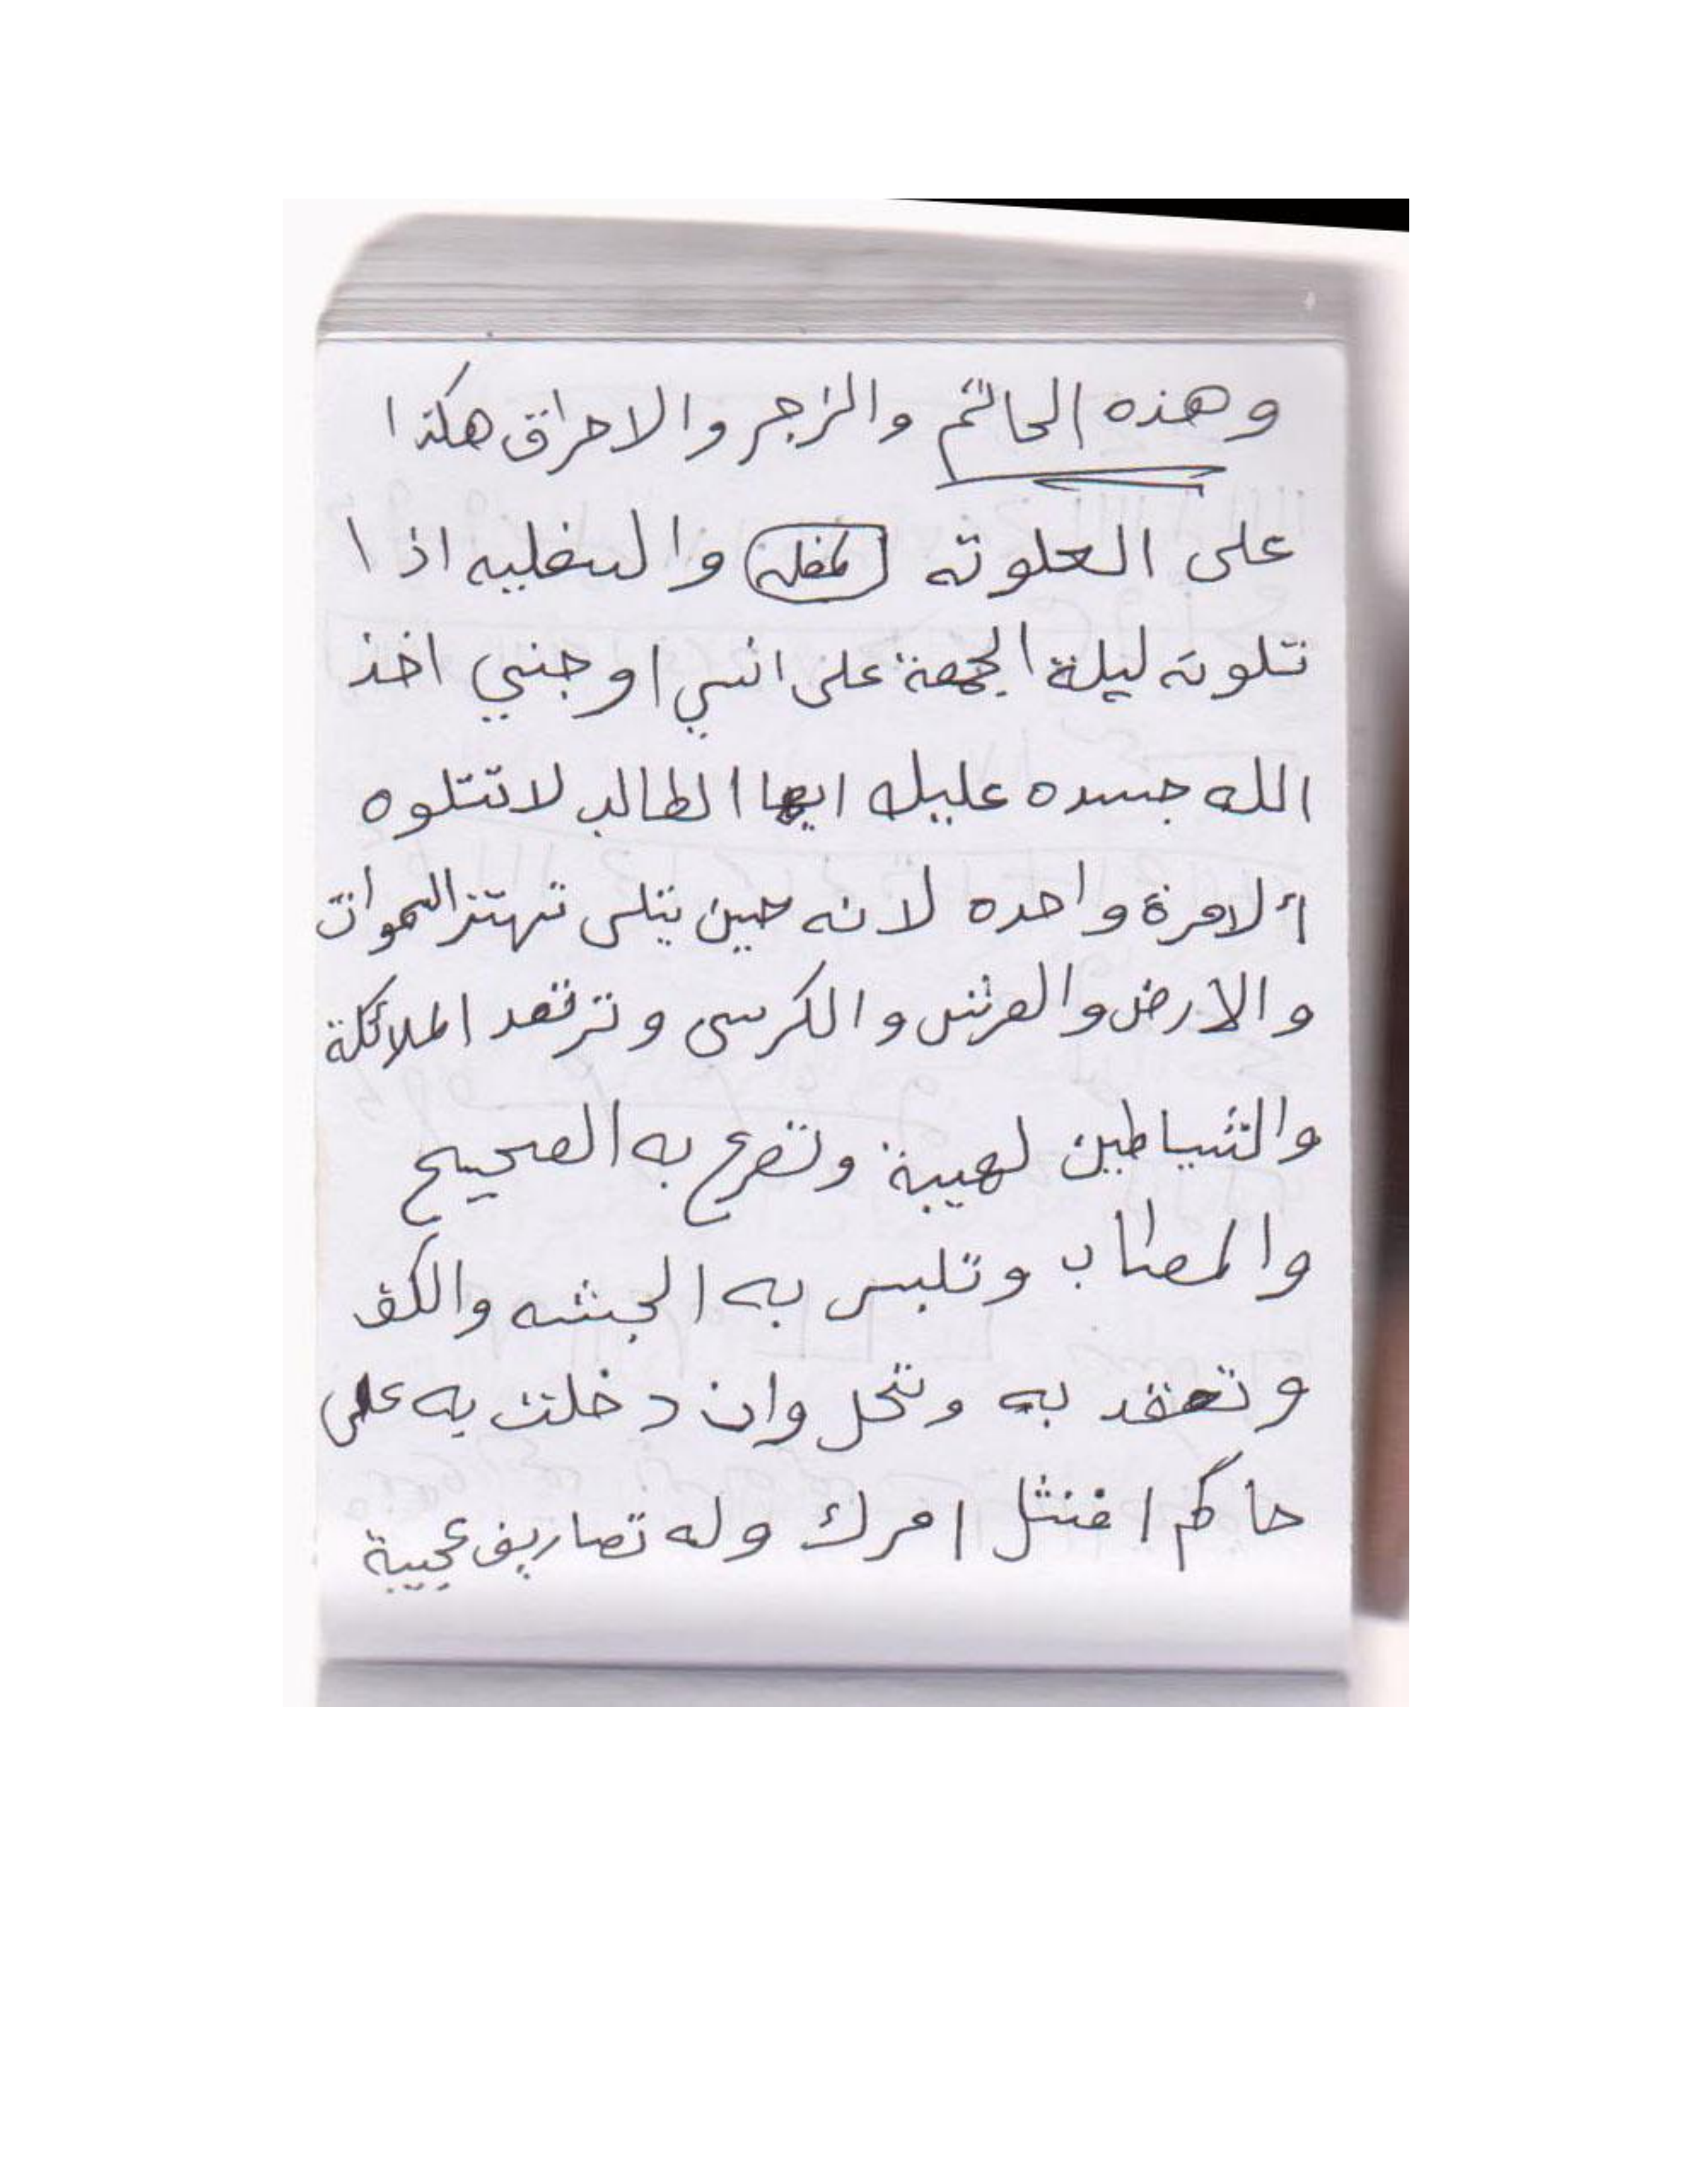 وهذه الحاتم والزجر والاحراق هكذا
على العلوته والسفليه اذا
تلوته ليلة الجمعة على انسي او جني اخذ
الله جسده عليك ايها الطالب لا تتلوه
ألا مرة واحده لانه حين يتلى تهتز السموات
والارض والعرش والكرسى وترتعد الملائكة
والشياطين لهيبة وتصرع به الصحيح
والمصاب وتلبس به الجثه والكف
وتعقد به وتحل وان دخلت به على
حاكم امتثل امرك وله تصاريف عجيبة